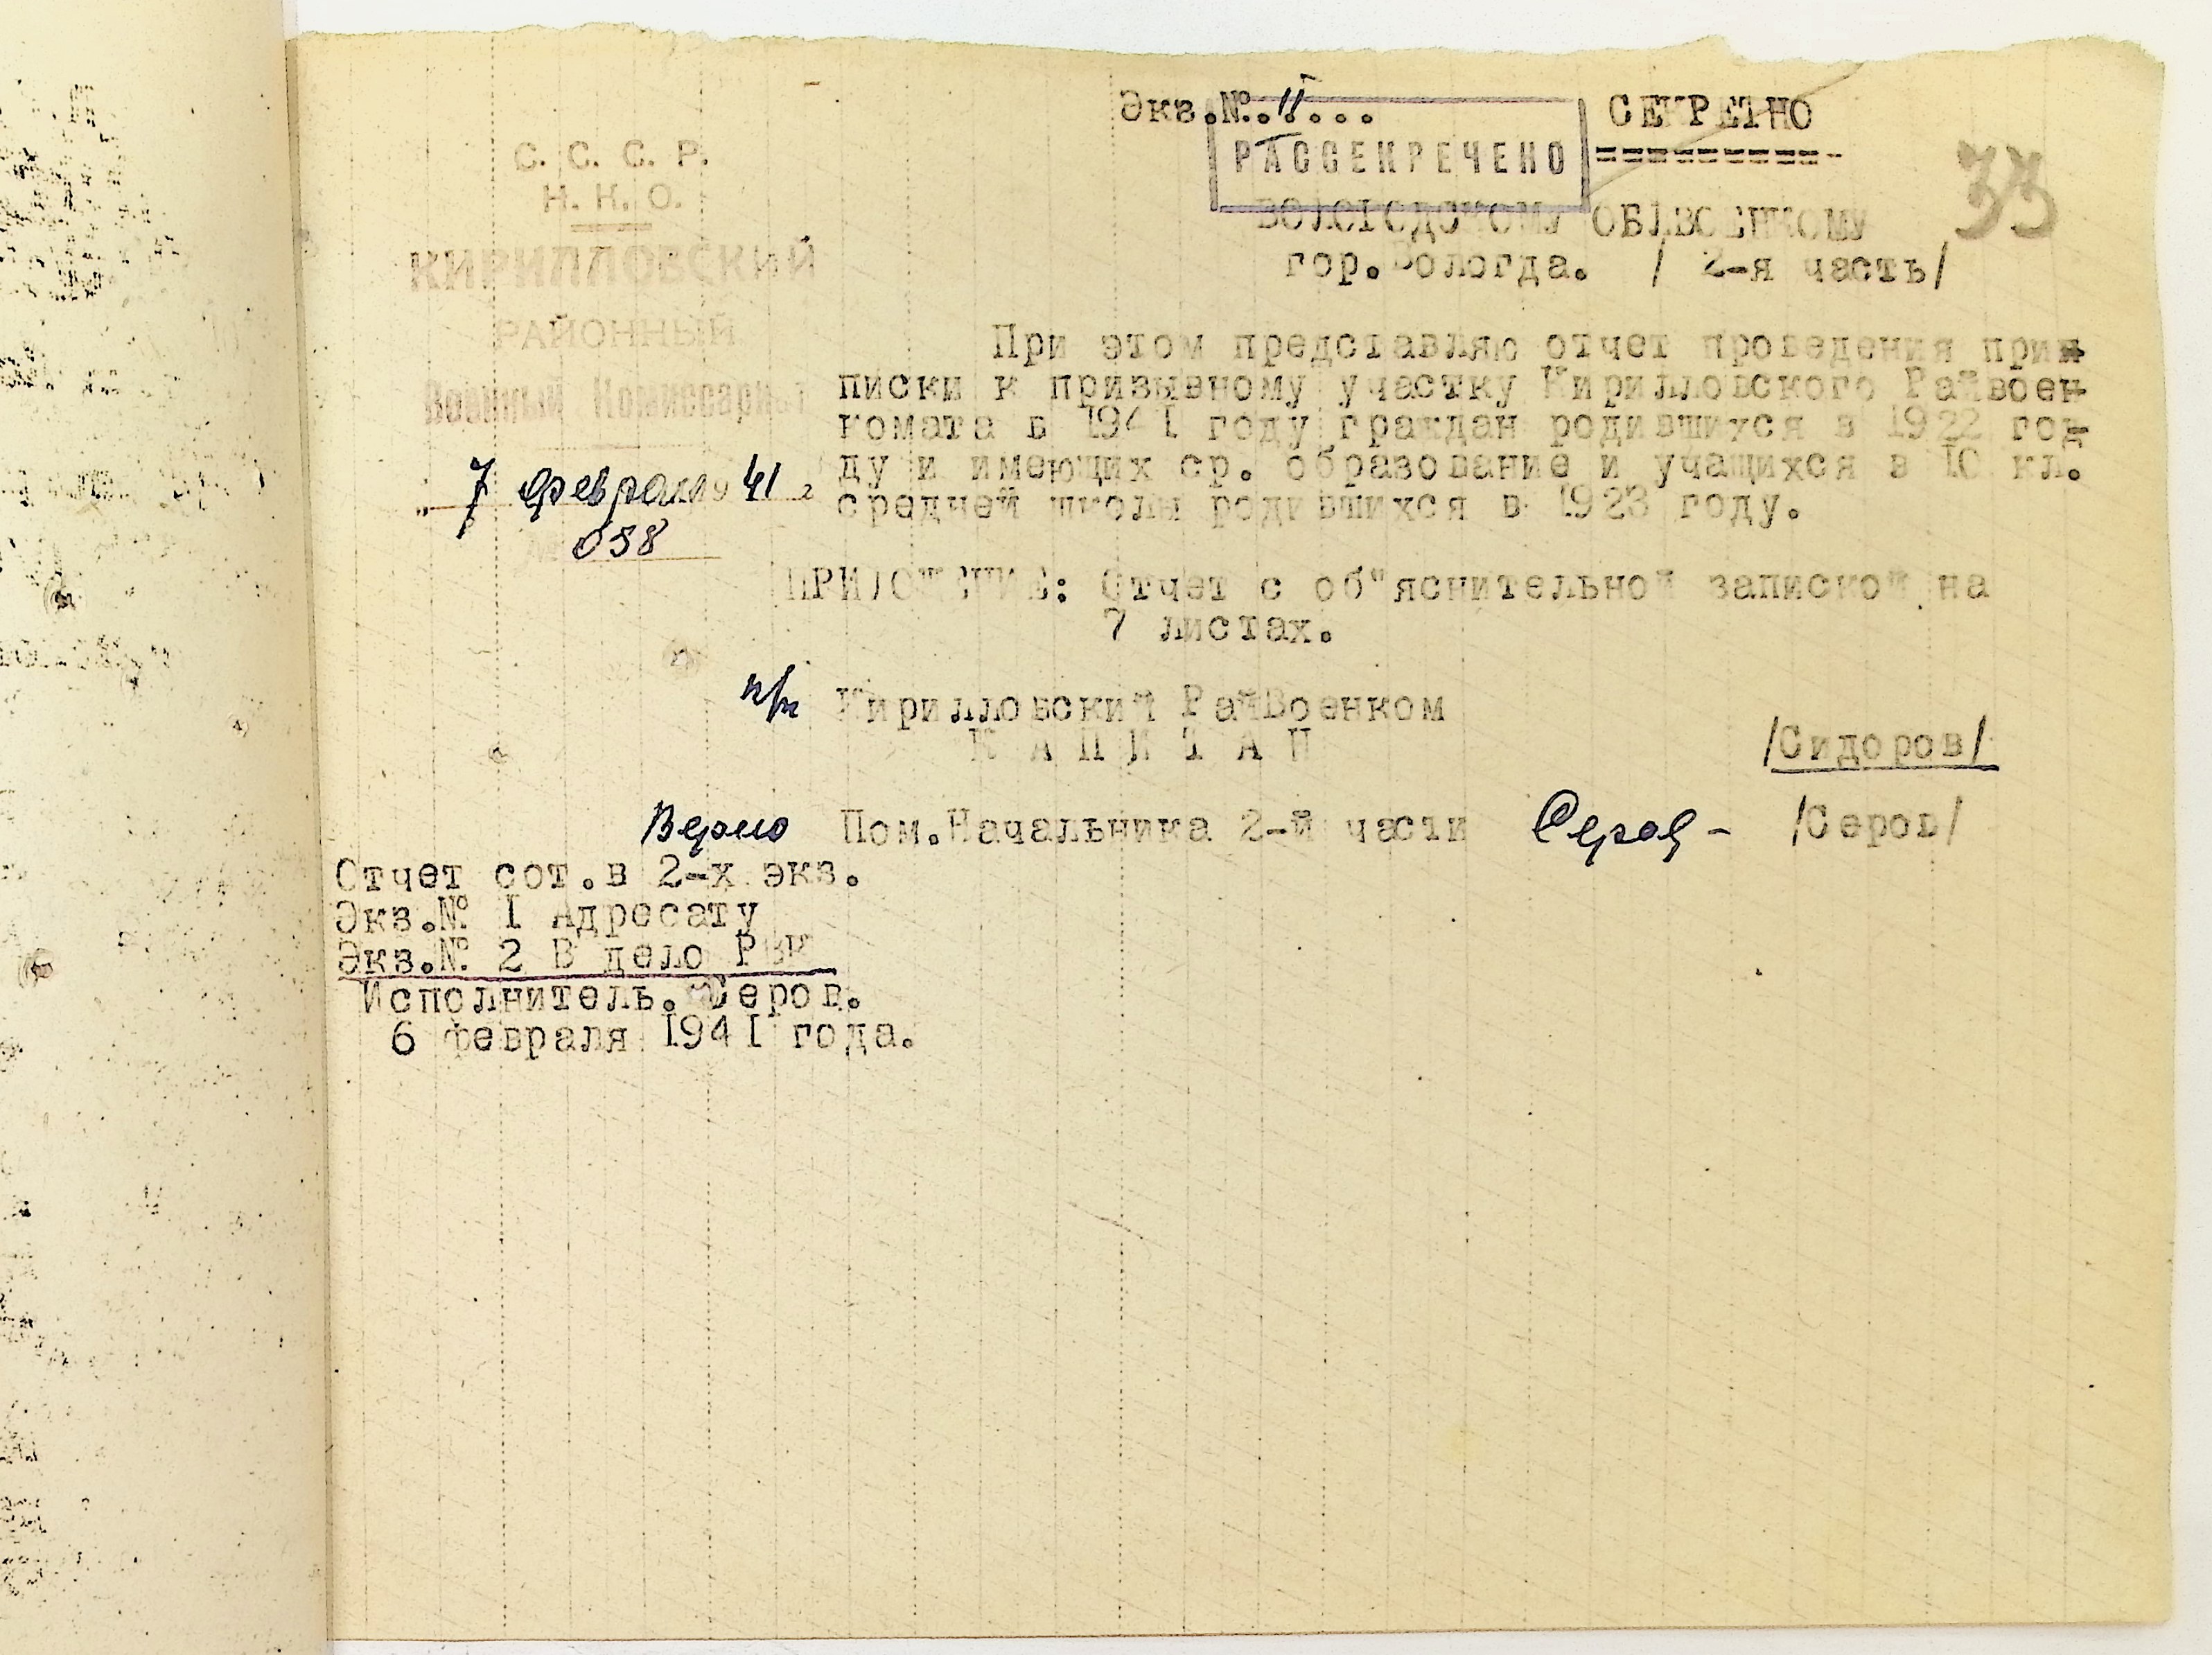 Экз.№..II...
СЕКРЕТНО
РАССЕКРЕЧЕНО
33
С. С. С. Р.
Н. К. О.
КИРИЛЛОВСКИЙ
РАЙОННЫЙ
Военный Комиссариат
7 февраля 41 г
№ 038
ВОЛОГОДСКОМУ ОБЛВОЕНКОМУ
гор.Вологда. / 2-я часть/
При этом представляю отчет проведения при
писки к призывному участку Кирилловского Райвоен-
комата в 1941 году граждан родившихся в 1922 го-
ду и имеющих ср. образование и учащихся в 10 кл.
средней школы родившихся в 1923 году.
ПРИЛОЖЕНИЕ: Отчет с об"яснительной запиской на
7 листах.
п/п Кирилловский РайВоенком
К А П И Т А Н
/Сидоров/
Верно Пом.Начальника 2-й части Серов- /Серов/
Отчет сот.в 2-х экз.
Экз.№ I Адресату
Экз.№ 2 В дело РВК
Исполнитель. Серов.
6 февраля 1941 года.